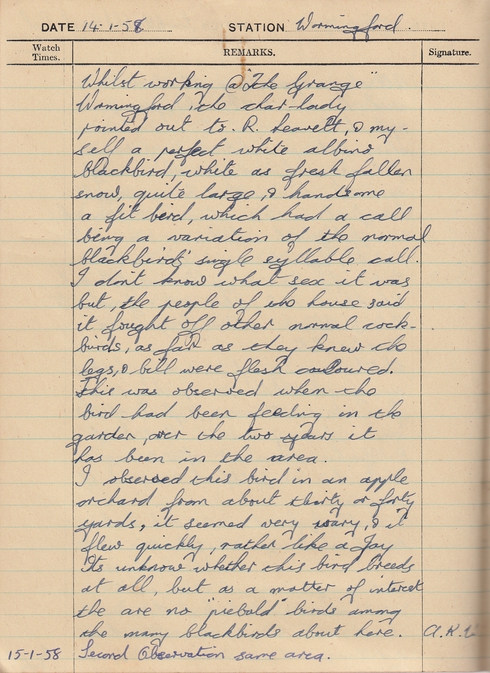 DATE 14-1-58 STATION Wormingford.
Watch Times. REMARKS. Signature.
Whilst working @ "The Grange"
Wormingford, the char-lady
pointed out to. R. Leavett, & my-
self a perfect white albino
blackbird, white as fresh fallen
snow, quite large, & handsome
a fit bird, which had a call
being a variation of the normal
blackbirds' single syllable call.
I don't know what sex it was
but, the people of the house said
it fought off other normal cock-
birds, as far as they knew the
legs, & bill were flesh coloured.
This was observed when the
bird had been feeding in the
garden, over the two years it
has been in the area.
I observed this bird in an apple
orchard from about thirty or forty
yards, it seemed very wary, & it
flew quickly, rather like a Jay
Its unknow whether this bird breeds
at all, but as a matter of interest
the are no "piebald" birds among
the many blackbirds about here. A.K.
15-1-58 Second Observation same area.